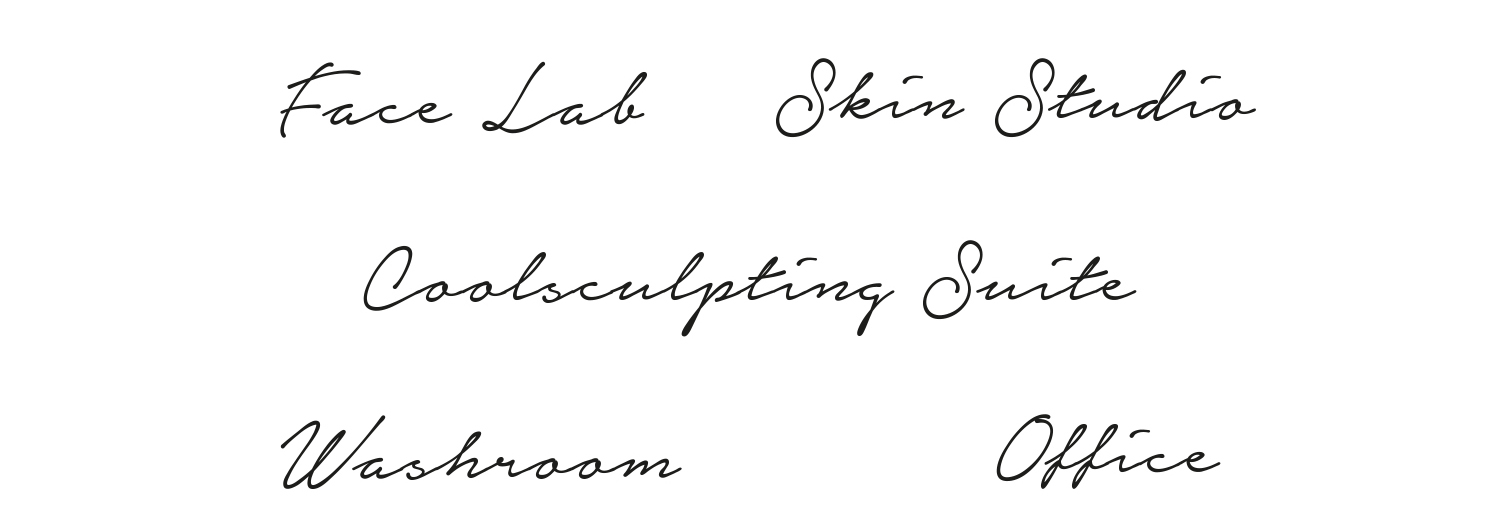 Face Lab Skin Studio
Coolsculpting Suite
Washroom Office